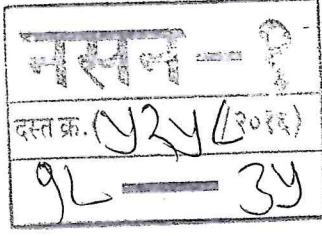 नसन - १
दस्त क्र. (५२५८/२०१६)
१८ — ३५